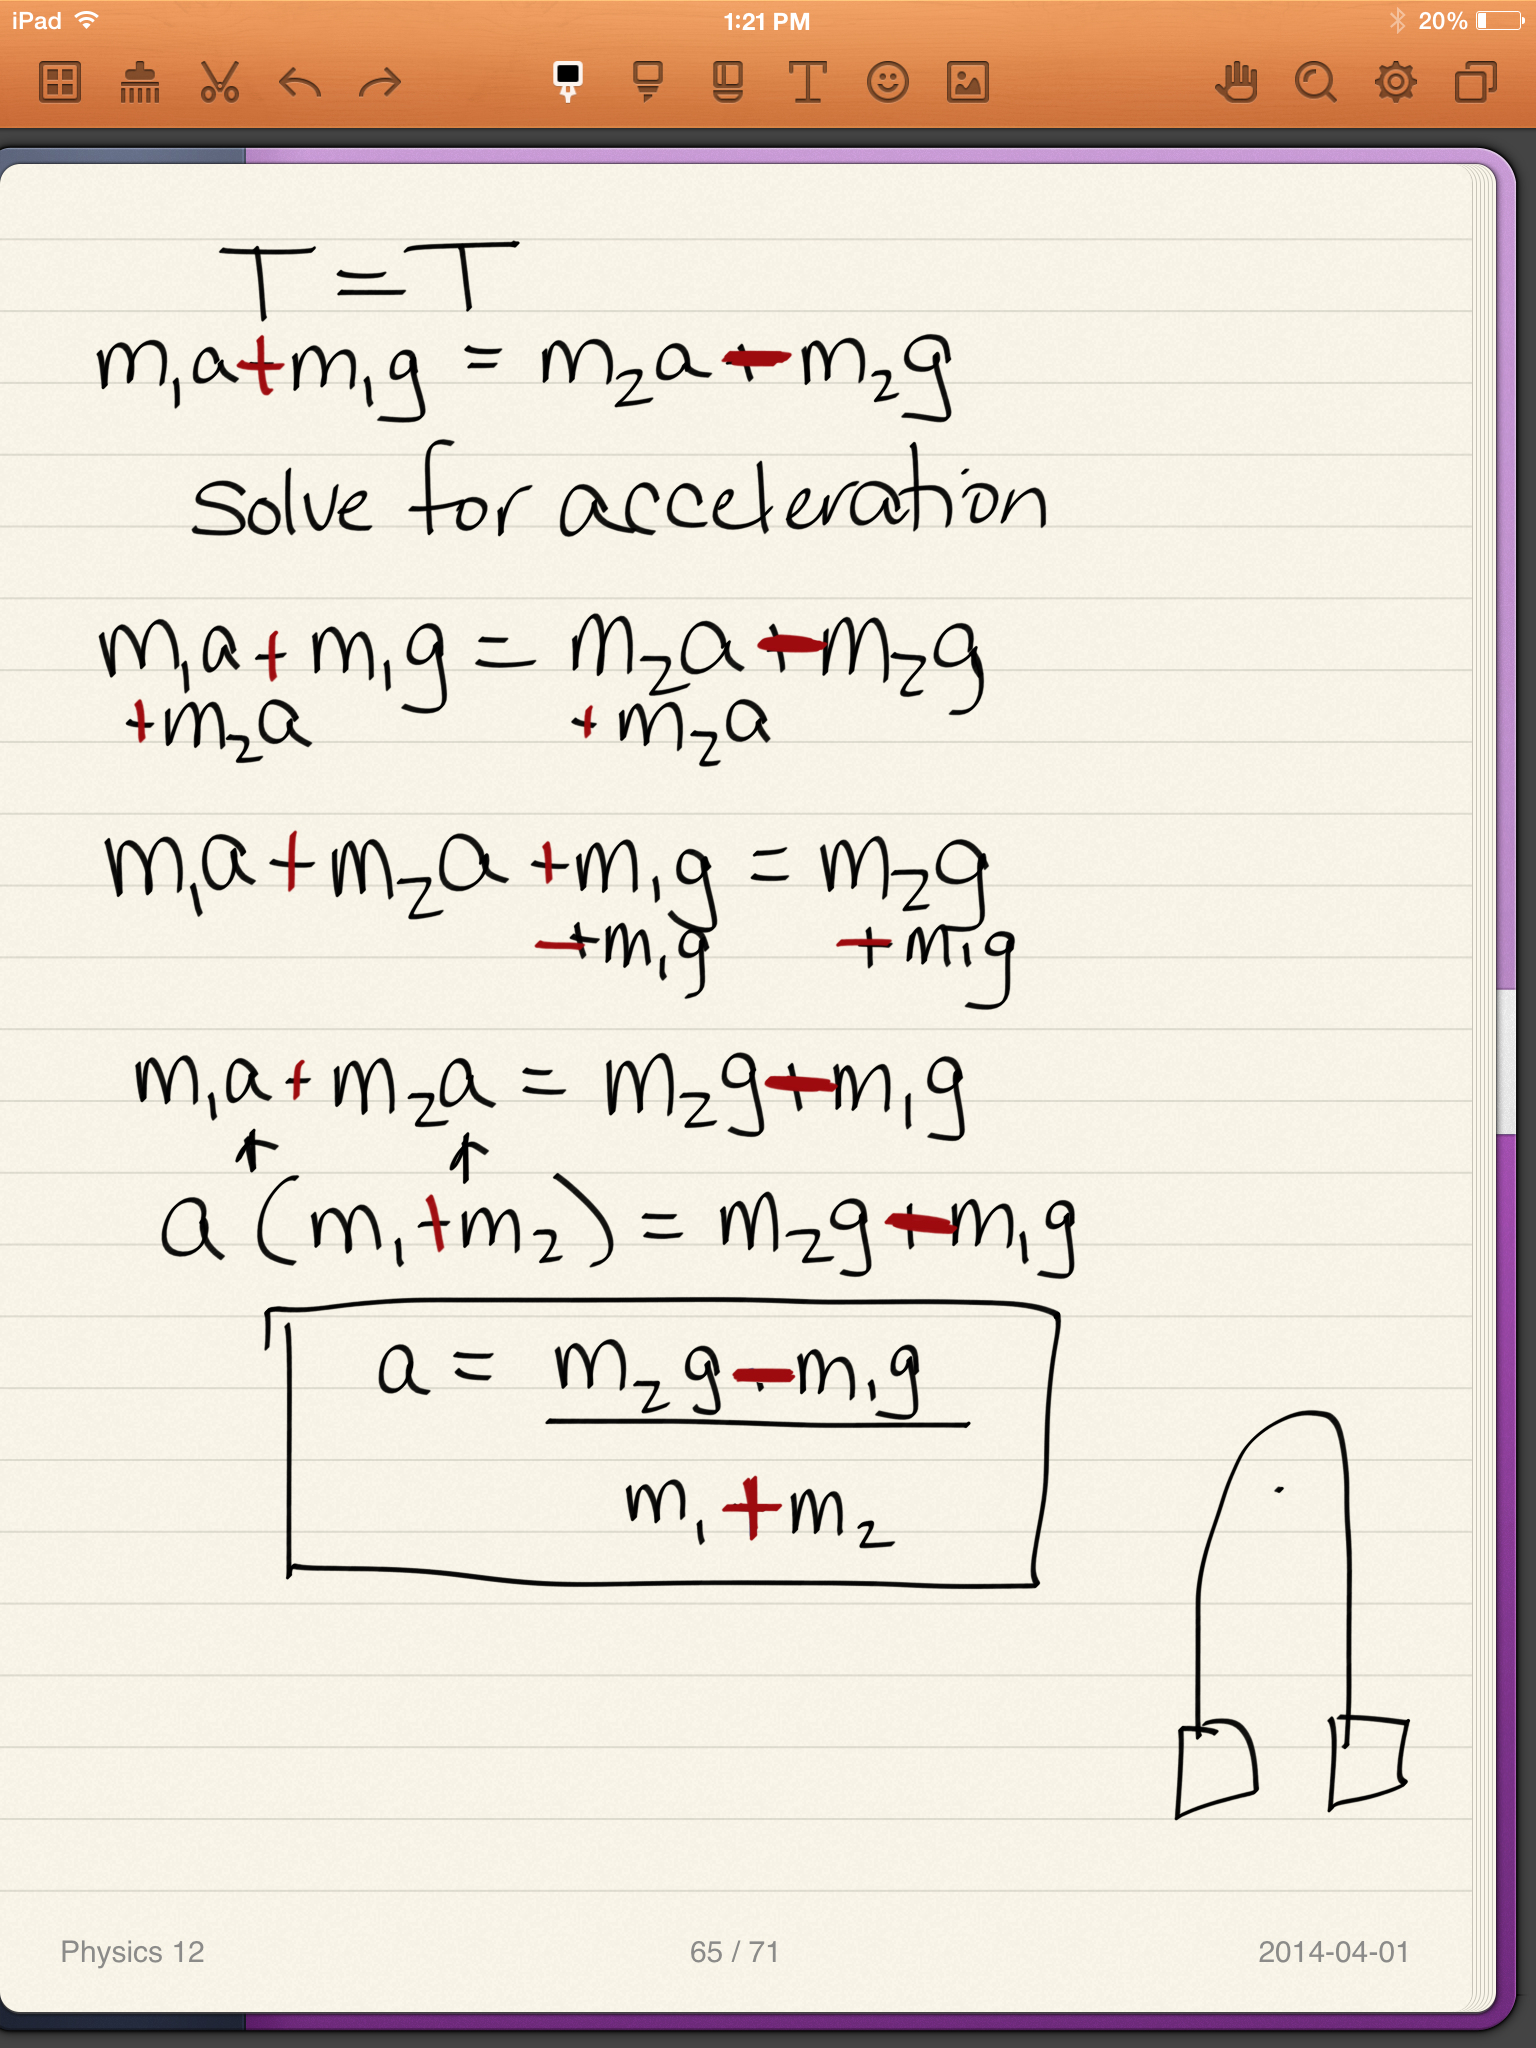 iPad 1:21 PM 20%
T = T
m₁a + m₁g = m₂a - m₂g
solve for acceleration
m₁a + m₁g = m₂a - m₂g
+m₂a + m₂a
m₁a + m₂a + m₁g = m₂g
- m₁g - m₁g
m₁a + m₂a = m₂g - m₁g
a (m₁ + m₂) = m₂g - m₁g
a = m₂g - m₁g
m₁ + m₂
Physics 12 65 / 71 2014-04-01